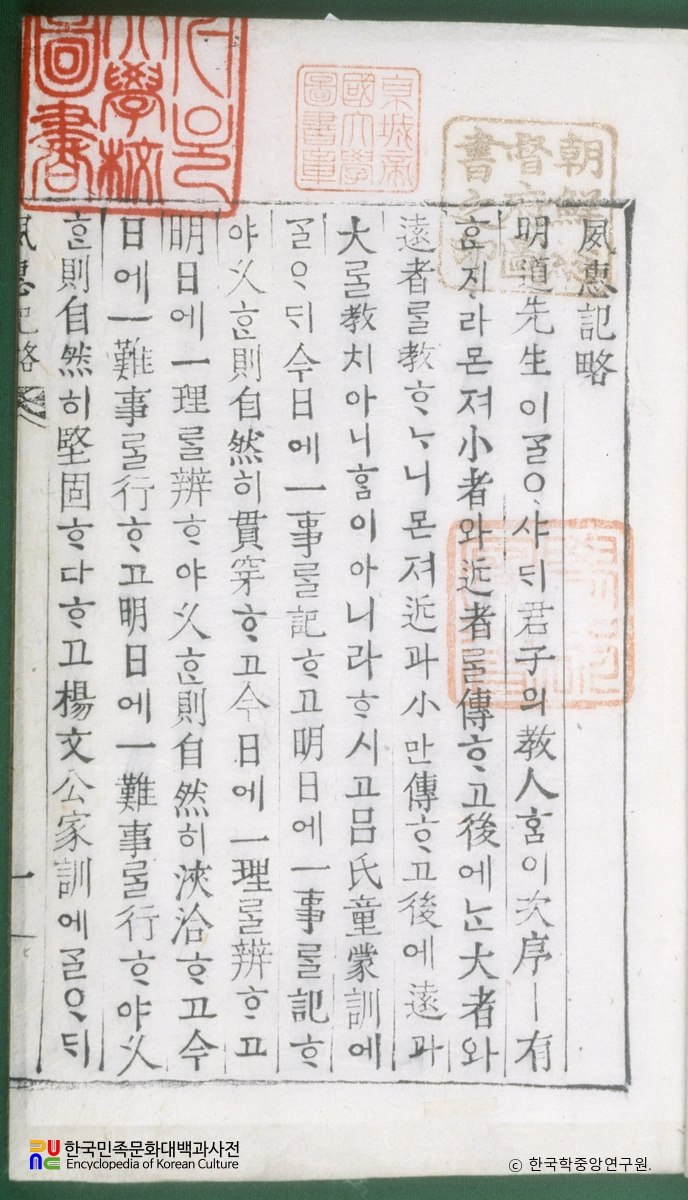 朝鮮總
督府圖
書之印
京城帝
國大學
圖書章
서울
大學校
圖書
夙惠記略
明道先生이ᄀᆞᆯᄋᆞ샤ᄃᆡ君子의教人홈이次序ㅣ有
ᄒᆞᆫ지라몬져小者와近者ᄅᆞᆯ傳ᄒᆞ고後에ᄂᆞᆫ大者와
遠者ᄅᆞᆯ教ᄒᆞᄂᆞ니몬져近과小만傳ᄒᆞ고後에遠과
大ᄅᆞᆯ教치아니홈이아니라ᄒᆞ시고呂氏童蒙訓에
ᄀᆞᆯᄋᆞᄃᆡ今日에一事ᄅᆞᆯ記ᄒᆞ고明日에一事ᄅᆞᆯ記ᄒᆞ
야久ᄒᆞᆫ則自然히貫穿ᄒᆞ고今日에一理ᄅᆞᆯ辨ᄒᆞ고
明日에一理ᄅᆞᆯ辨ᄒᆞ야久ᄒᆞᆫ則自然히浹洽ᄒᆞ고今
日에一難事ᄅᆞᆯ行ᄒᆞ고明日에一難事ᄅᆞᆯ行ᄒᆞ야久
ᄒᆞᆫ則自然히堅固ᄒᆞ다ᄒᆞ고楊文公家訓에ᄀᆞᆯᄋᆞᄃᆡ
夙惠記略 一
한국민족문화대백과사전
Encyclopedia of Korean Culture
© 한국학중앙연구원.